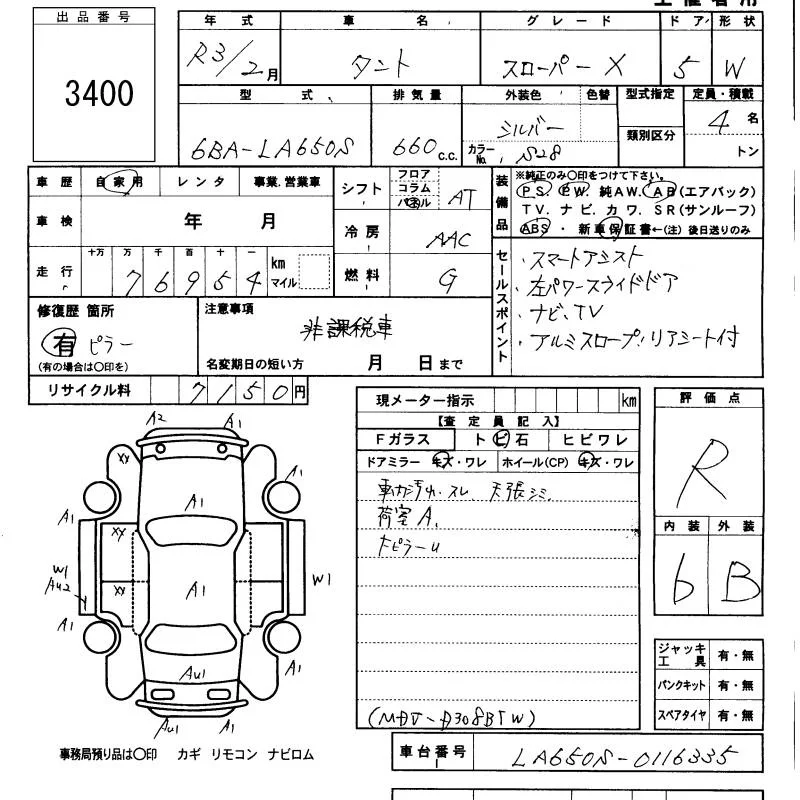 出品番号
3400
年式 車名 グレード ドア 形状
R3/2月 タント スローパーX 5 W
型式 排気量 外装色 色替 型式指定 定員・積載
6BA-LA650S 660c.c. シルバー 類別区分 4名
カラーNo. S28 トン
車歴 自家用 レンタ 事業.営業車
シフト フロア コラム パネル AT
車検 年 月
冷房 AAC
十万 万 千 百 十 一
走行 76954 km マイル
燃料 G
装備品 ※純正のみ〇印をつけて下さい。
PS. PW. 純AW. AB(エアバック)
TV. ナビ. カワ. SR(サンルーフ)
ABS ・ 新車保証書←(注) 後日送りのみ
セールスポイント
・スマートアシスト
・左パワースライドドア
・ナビ、TV
・アルミスロープ!リアシート付
修復歴 箇所
有 ピラー
(有の場合は〇印を)
注意事項
非課税車
名変期日の短い方 月 日まで
リサイクル料 7150円
現メーター指示 km
【査定員記入】
Fガラス トビ石 ヒビワレ
ドアミラー キズ・ワレ ホイール(CP) キズ・ワレ
車内汚れ・スレ 天張シミ
荷室A1
左ピラーU
(MDV-D308BTW)
評価点
R
内装 外装
6 B
ジャッキ工具 有・無
パンクキット 有・無
スペアタイヤ 有・無
A2 A1
XY A1
A1 A1
XY
W1 AU2 XY A1 W1
A1 A1
AU1
AU1 A1
事務局預り品は〇印 カギ リモコン ナビロム
車台番号 LA650S-0116335